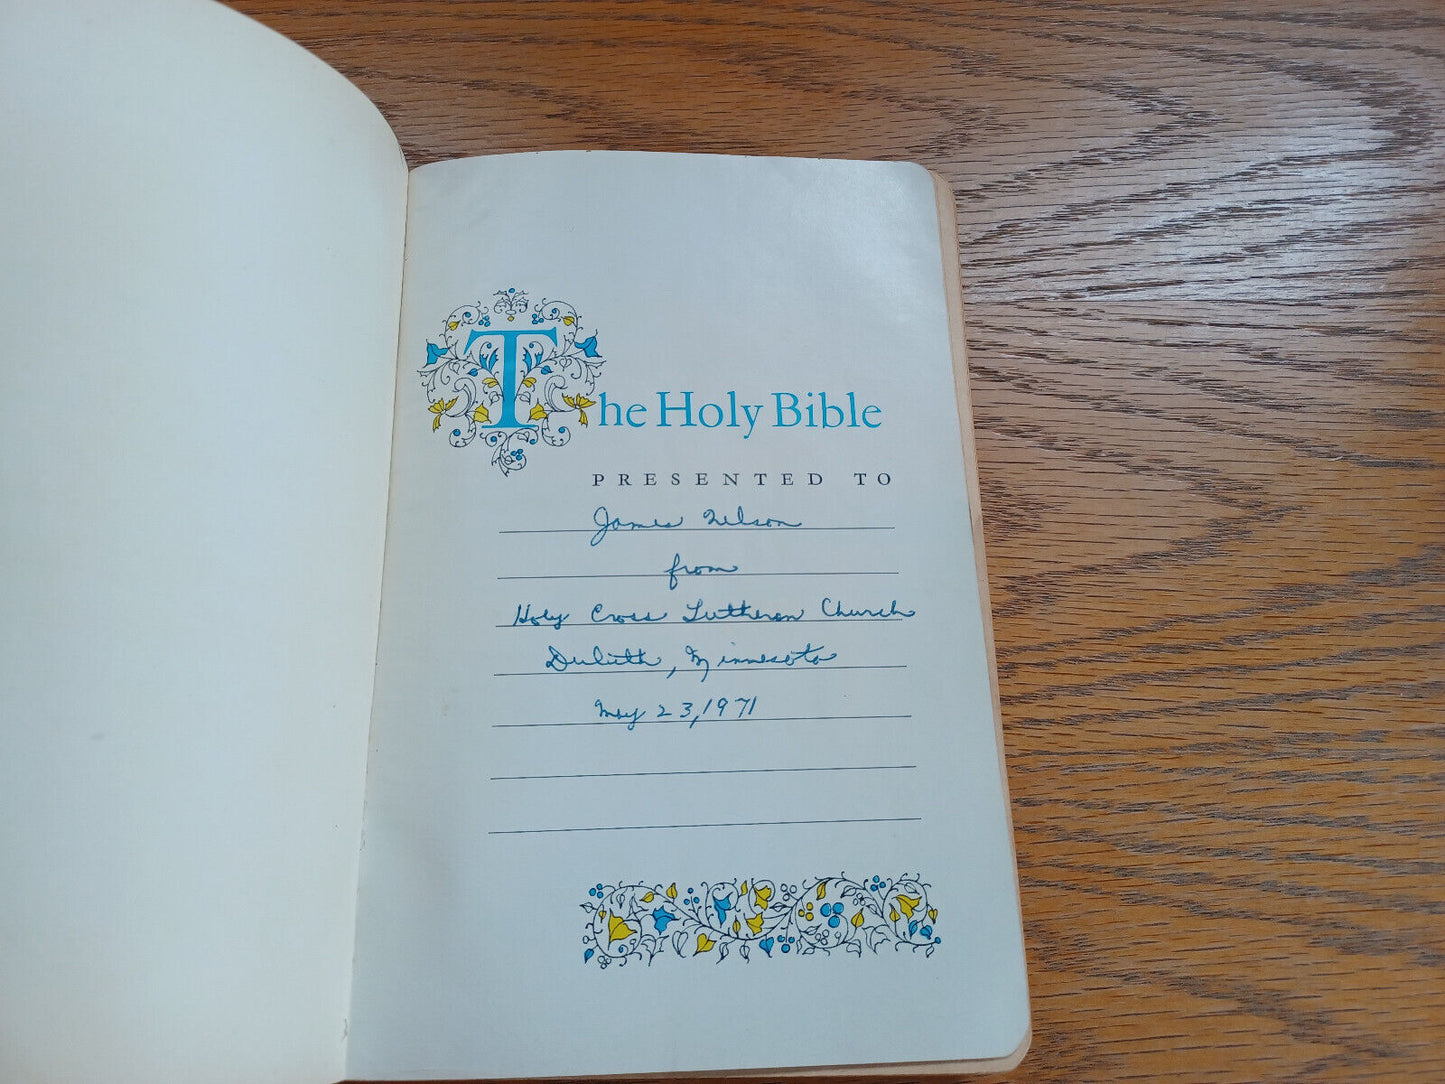 The Holy Bible
PRESENTED TO
James Nelson
from
Holy Cross Lutheran Church
Duluth, Minnesota
May 23, 1971